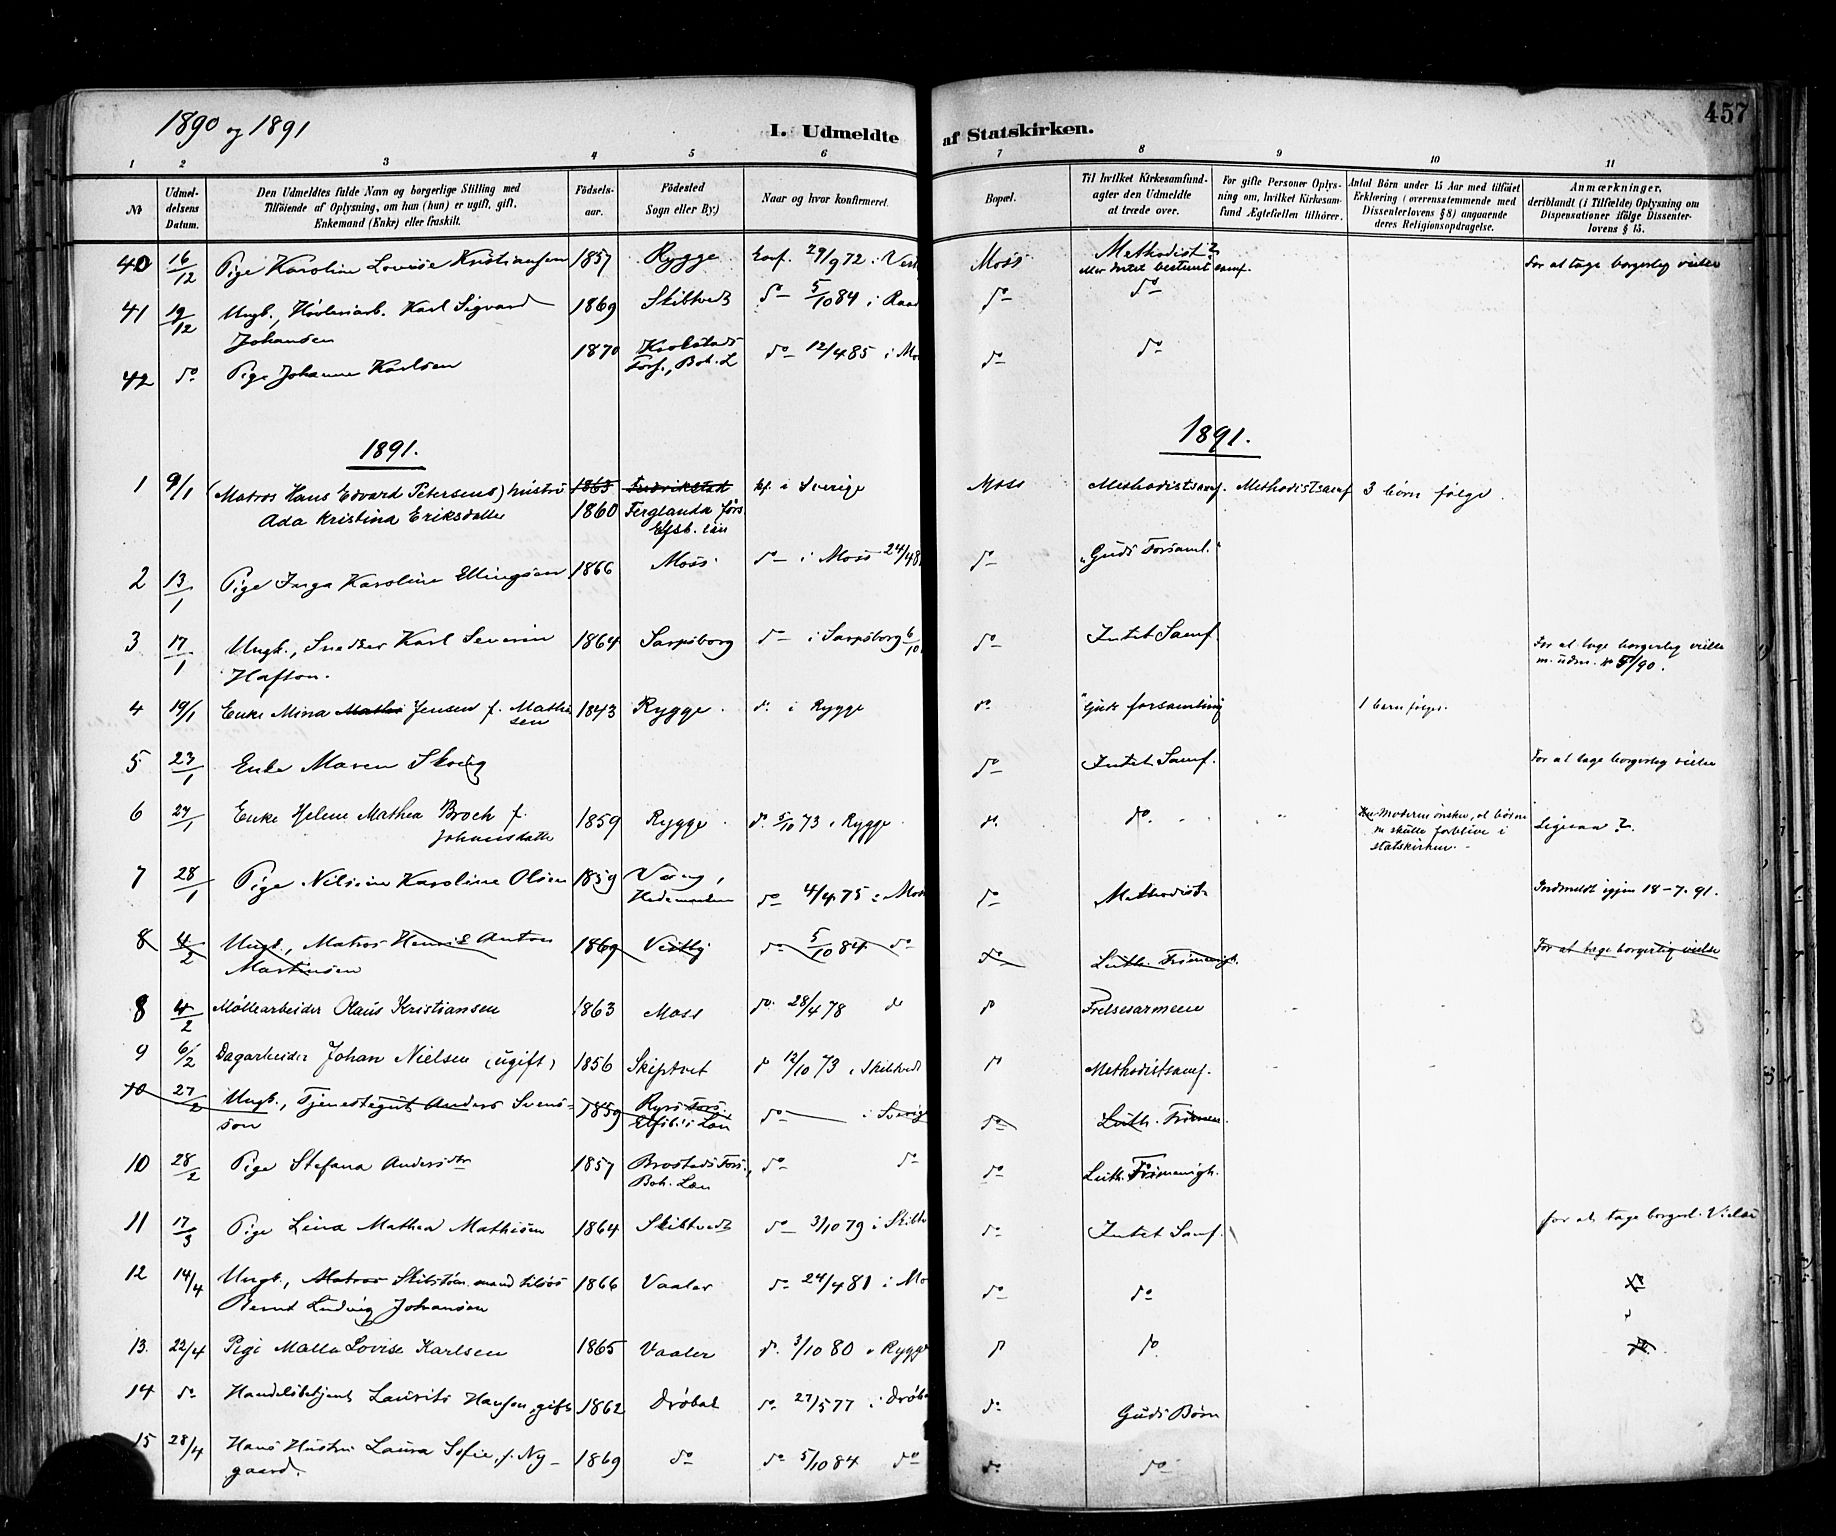 457
1890 og 1891
I. Udmeldte af Statskirken.
1 2 3 4 5 6 7 8 9 10 11
№
Udmeldelsens Datum.
Den Udmeldtes fulde Navn og borgerlige Stilling med
Tilføiende af Oplysning, om han (hun) er ugift, gift,
Enkemand (Enke) eller fraskilt.
Fødselsaar.
Fødested
Sogn eller By.)
Naar og hvor konfirmeret.
Bopæl.
Til hvilket Kirkesamfund
agter den Udmeldte
at træde over.
For gifte Personer Oplysning om, hvilket Kirkesamfund Ægtefællen tilhører.
Antal Børn under 15 Aar med tilføiet
Erklæring (overensstemmende med
Dissenterlovens § 8) angaaende
deres Religionsopdragelse.
Anmærkninger,
deriblandt (i Tilfælde) Oplysning om
Dispensationer ifølge Dissenterlovens § 15.
40 16/12 Pige Karoline Lovise Kristiansen 1857 Rygge Conf. 29/9 72 i Vest Moss Methodist? eller intet bestemt samf. For at tage borgerlig vielse
41 19/12 Ungk., Høvleriarb. Karl Sigvard Johansen 1869 Skibtvedt do 5/10 84 i Raad do do
42 do Pige Johanne Karlsen 1870 Krokstads Fors., Boh. L do 12/4 85 i Mo do do
1891. 1891.
1 9/1 (Matros Hans Edvard Petersens) hustru 1863 Fredrikstad kf. i Sverige Moss Methodistsamf. Methodistsamf 3 børn følge.
Ada Kristina Eriksdatter 1860 Ferglanda förs. Elfsb. län
2 13/1 Pige Inga Karoline Ellingsen 1866 Moss do i Moss 24/4 8 do "Guds Forsaml."
3 17/1 Ungk., Snedker Karl Severin Hafton. 1864 Sarpsborg do i Sarpsborg 6/10 do Intet Samf For at tage borgerlig vielse m. udm. /90.
4 19/1 Enke Mina Mathi Jensen f. Mathisen 1843 Rygge do i Rygge do "Guds forsamling 1 barn følger.
5 23/1 Enke Maren Skoug do Intet Samf. For at tage borgerlig vielse
6 27/1 Enke Helene Mathea Broch f. Johansdatter 1859 Rygge do 5/10 73 i Rygge do do Moderen ønsker, at børnene skulle forblive i statskirken. Ligesaa ?.
7 28/1 Pige Nilsine Karoline Olsen 1859 Vang, Hedemarken do 4/4 75 i Moss do Methodist Indmeldt igjen 18-7-91.
8 4/2 Ungk., Matros Henrik Anton Martinsen 1869 Vestby do 5/10 84 do do Luth. Frimenigh. For at tage borgerlig vielse
8 4/2 Møllearbeider Olaus Kristiansen 1863 Moss do 28/4 78 do do Frelsesarmeen
9 6/2 Dagarbeider Johan Nielsen (ugift) 1856 Skiptvet do 12/10 73 i Skibtvedt do Methodistsamf.
10 27/2 Ungk., Tjenestegut Anders Svensson 1859 Ryrs Fors. Elfsb. Län do i Sverig do Luth. Frimen.
10 28/2 Pige Stefana Andersdtr 1857 Brostads Fors., Boh. Län do do do Luth. Frimenigh.
11 17/3 Pige Lina Mathea Mathisen 1864 Skibtvedt do 3/10 79 i Skibtv do Intet Samf. for at tage borgerl. Vielse
12 14/4 Ungk., Matros Skibstømmermand tilsøs Bernt Ludvig Johansen 1866 Vaaler do 24/4 81 i Mo do do do
13. 22/4 Pige Malla Lovise Karlsen 1865 Vaaler do 3/10 80 i Rygge do do do
14 do Handelsbetjent Laurits Hansen, gift 1862 Drøbak do 27/5 77 i Drøba do Guds Børn
15 28/4 Hans Hustru Laura Sofie, f. Nygaard. 1869 do do 5/10 84 do do do